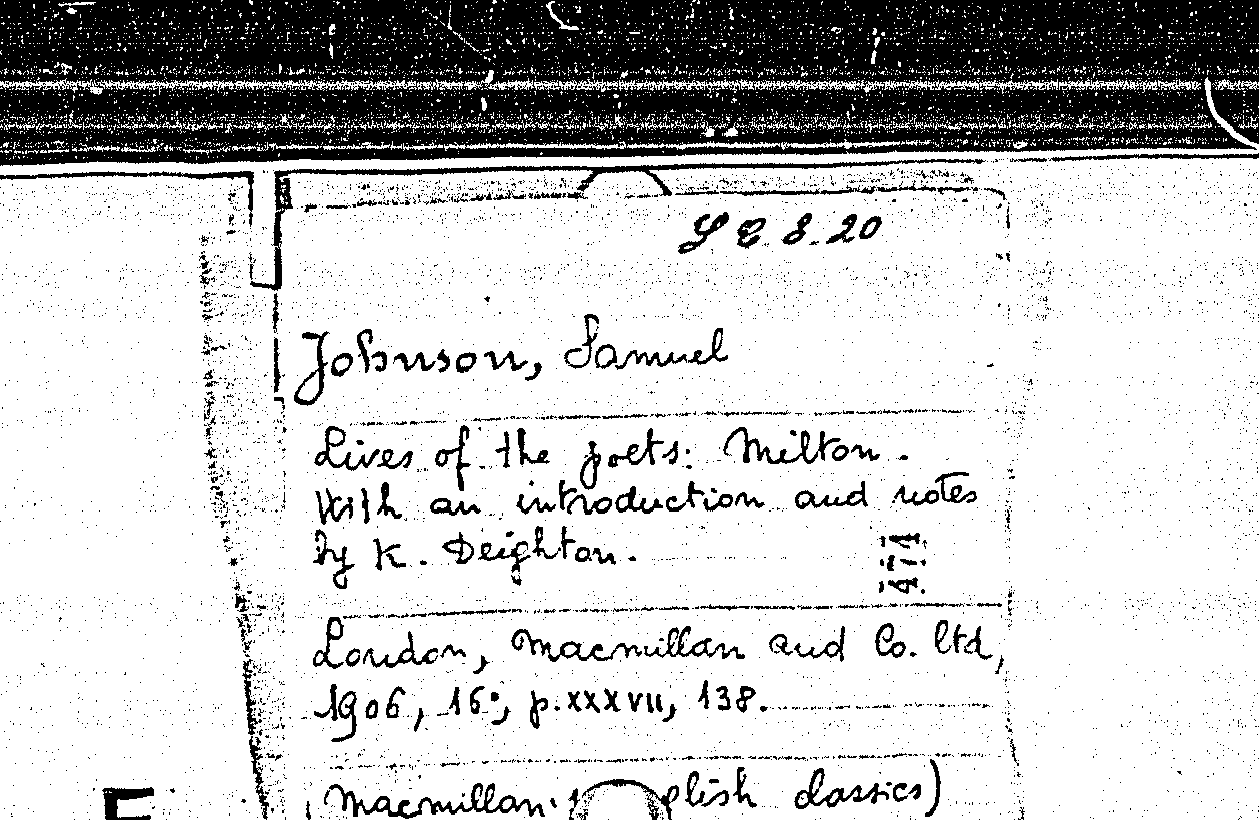 S E 8. 20
Johnson, Samuel
Lives of the poets: Milton.
With an introduction and notes
by K. Deighton.
London, Macmillan and Co. ltd,
1906, 16°, p. XXXVII, 138.
(Macmillan's English classics)